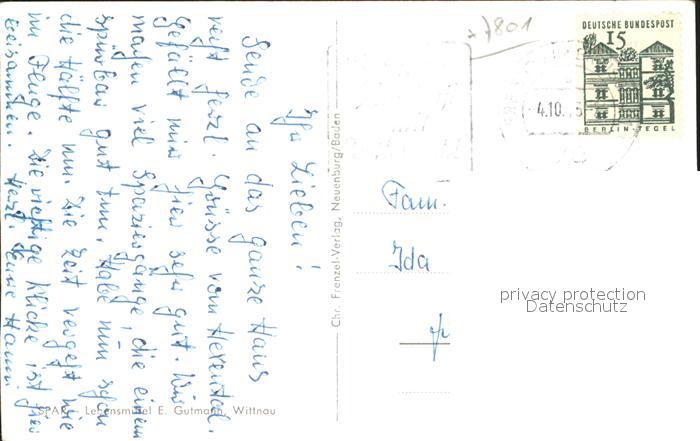 Ihr Lieben!
Sende an das ganze Haus
recht herzl. Grüsse vom Hexental.
Gefällt mir hier sehr gut. Wir
machen viel Spaziergänge, die einem
spürbar gut tun. Habe nun schon
die Hälfte um. Die Zeit vergeht wie
im Fluge. Die richtige Klicke ist hier
beisammen. Herzl.
Chr. Frenzel-Verlag, Neuenburg/Baden
SPAR - Lebensmittel E. Gutmann, Wittnau
7801
DEUTSCHE BUNDESPOST
15
BERLIN-TEGEL
4.10.
Fam.
Ida
privacy protection
Datenschutz